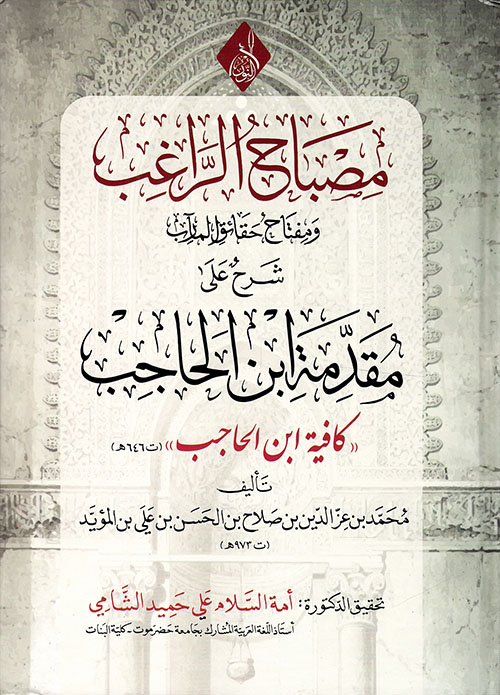 النور
مِصْبَاحُ الرَّاغِب
وَمِفْتَاحُ حَقَائِقِ المَآرِب
شَرْحٌ عَلَى
مُقَدِّمَةِ ابْنِ الحَاجِبْ
«كافية ابن الحاجب» (ت٦٤٦هـ)
تَأليف
مُحَمَّد بن عِزّ الدّين بن صَلاح بن الحَسَن بن عَلي بن المؤيَّد
(ت٩٧٣هـ)
تحقيق الدكتورة: أمة السَّلام عَلي حَميد الشَّامِي
أستاذ اللّغة العربيّة المُشارك بجامعة حَضرموت - كليّة البنات